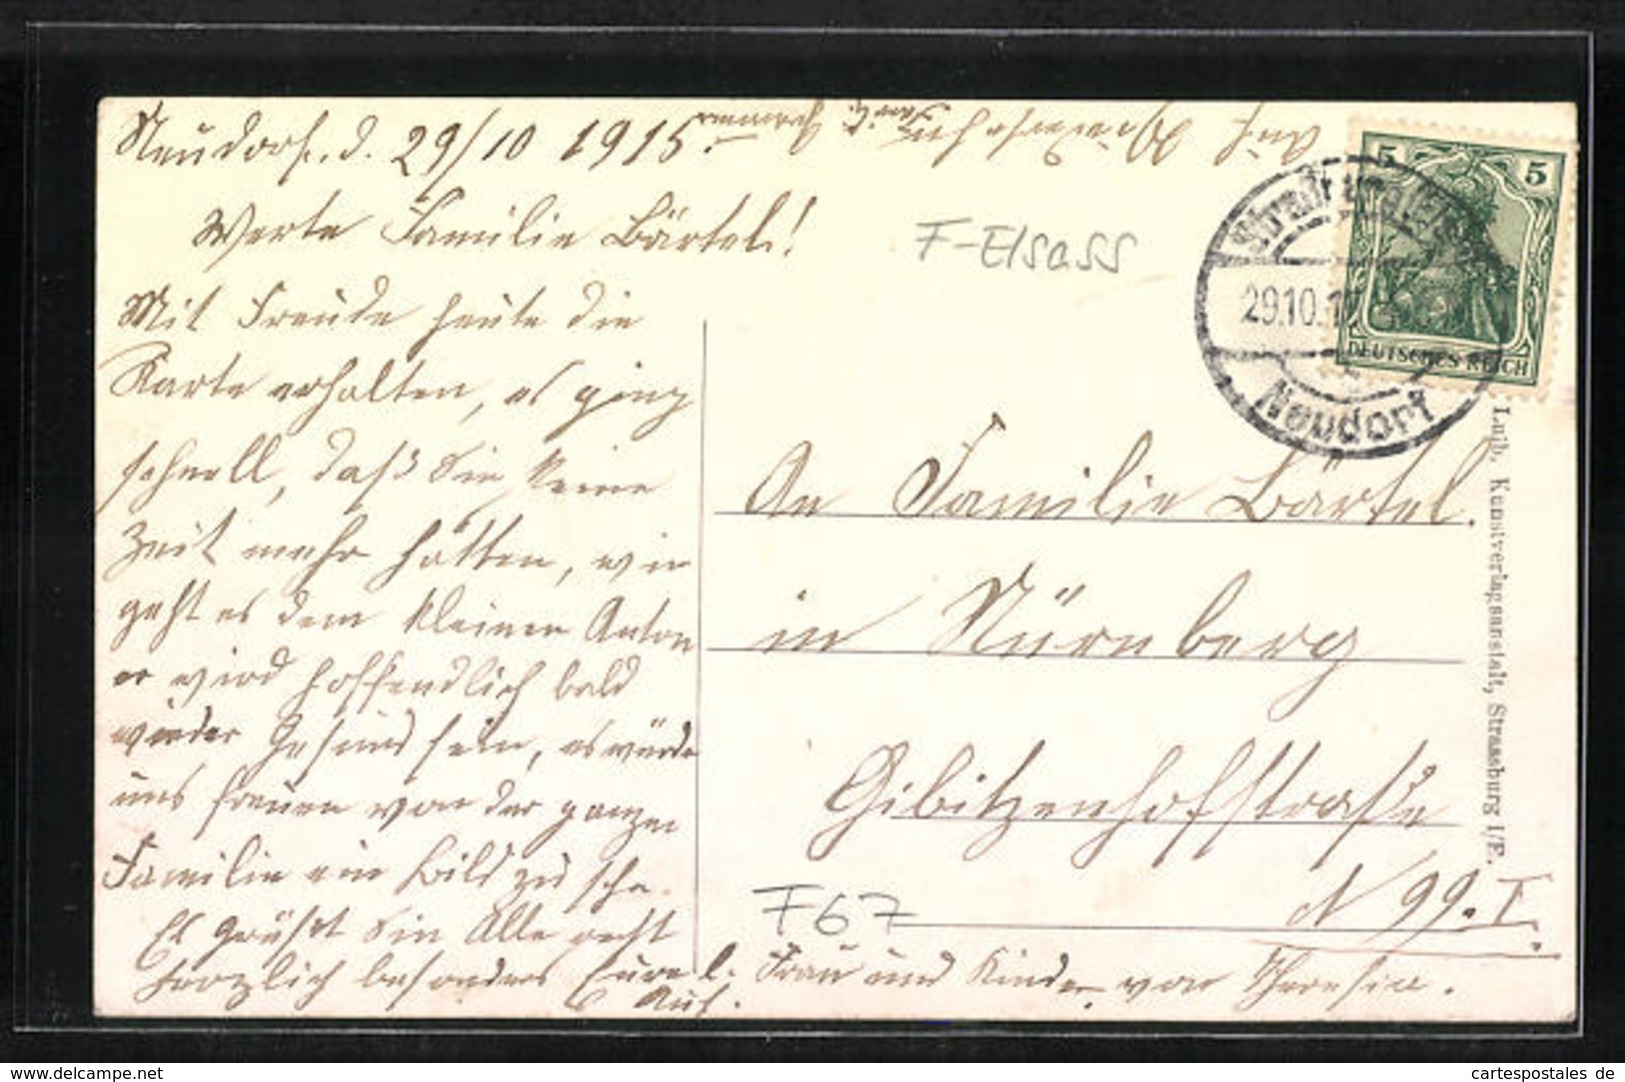 Neudorf. d. 29/10 1915.
Werte Familie Bärtel!
Mit Freude heute die
Karte erhalten, es ging
schnell, daß Sie keine
Zeit mehr hatten, wie
geht es dem kleinen Anton
er wird hoffendlich bald
wieder Gesund sein, es würde
uns freuen von der ganzen
Familie ein Bild zu sehn.
Es Grüßt Sie Alle recht
herzlich besonders Eure l. Frau und Kinder von Theresia.
Auf.
Auf Wiedersehn
Familie
F-Elsass
5 5
DEUTSCHES REICH
29.10.1
Neudorf
An Familie Bärtel.
in Nürnberg
Gibitzenhofstraße
N 99. I.
F67
Luib, Kunstverlagsanstalt, Strassburg i/E.
delcampe.net
cartespostales de